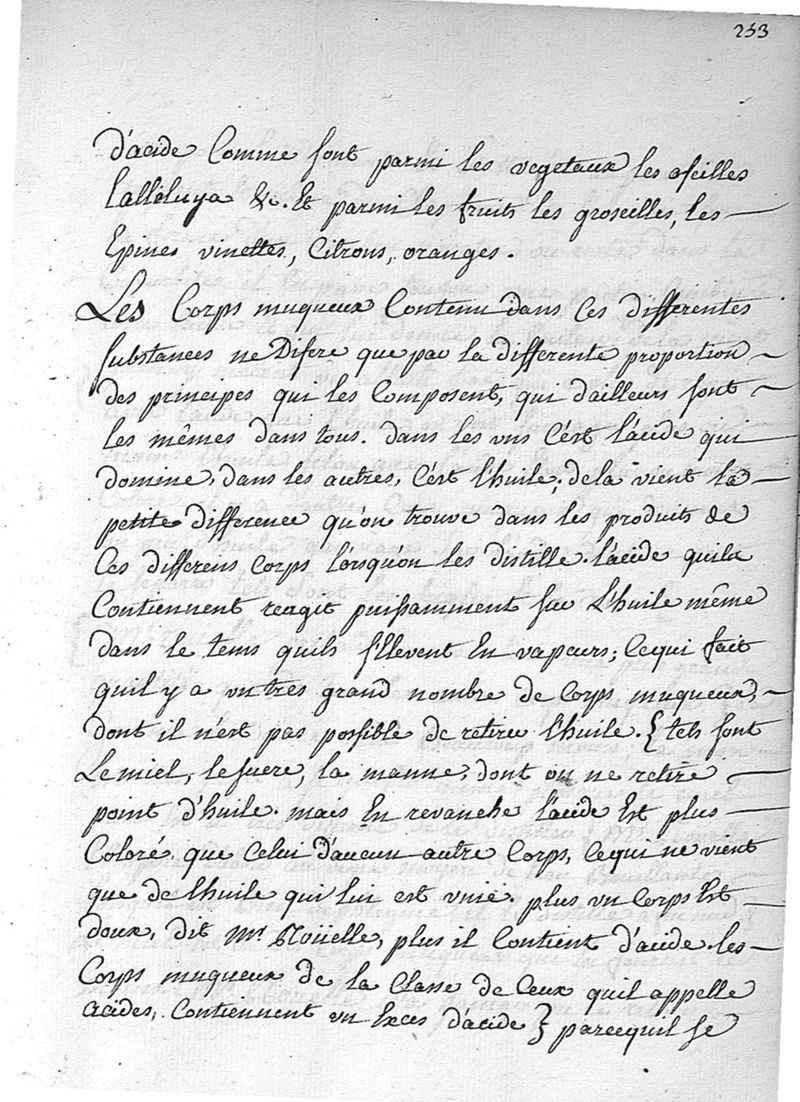 253
d'acide Comme sont parmi les vegetaux les oseilles
l'alleluya &c. Et parmi les fruits les groseilles, les
Epines vinettes, Citrons, oranges.
Les Corps muqueux Contenu dans Ces differentes
substances ne Difere que par la differente proportion
des principes qui les Composent, qui d'ailleurs sont
les mêmes dans tous. dans les uns C'est l'acide qui
domine, dans les autres, C'est l'huile, dela vient la
petite difference qu'on trouve dans les produits de
Ces differens Corps lorsqu'on les distille. l'acide quila
Contiennent reagit puissamment sur L'huile même
dans le tems quils s'Elevent En vapeurs; Cequi fait
quil y a un tres grand nombre de Corps muqueux,
dont il n'est pas possible de retirer l'huile. { tels sont
Le miel, le sucre, la manne, dont on ne retire
point d'huile. mais En revanche l'acide Est plus
Coloré que Celui d'aucun autre Corps, Cequi ne vient
que de l'huile qui lui est unie. plus un Corps Est
doux, dit Mr. Roüelle, plus il Contient d'acide. les
Corps muqueux de la Classe de Ceux quil appelle
acides, Contiennent un Exces d'acide } parcequil se